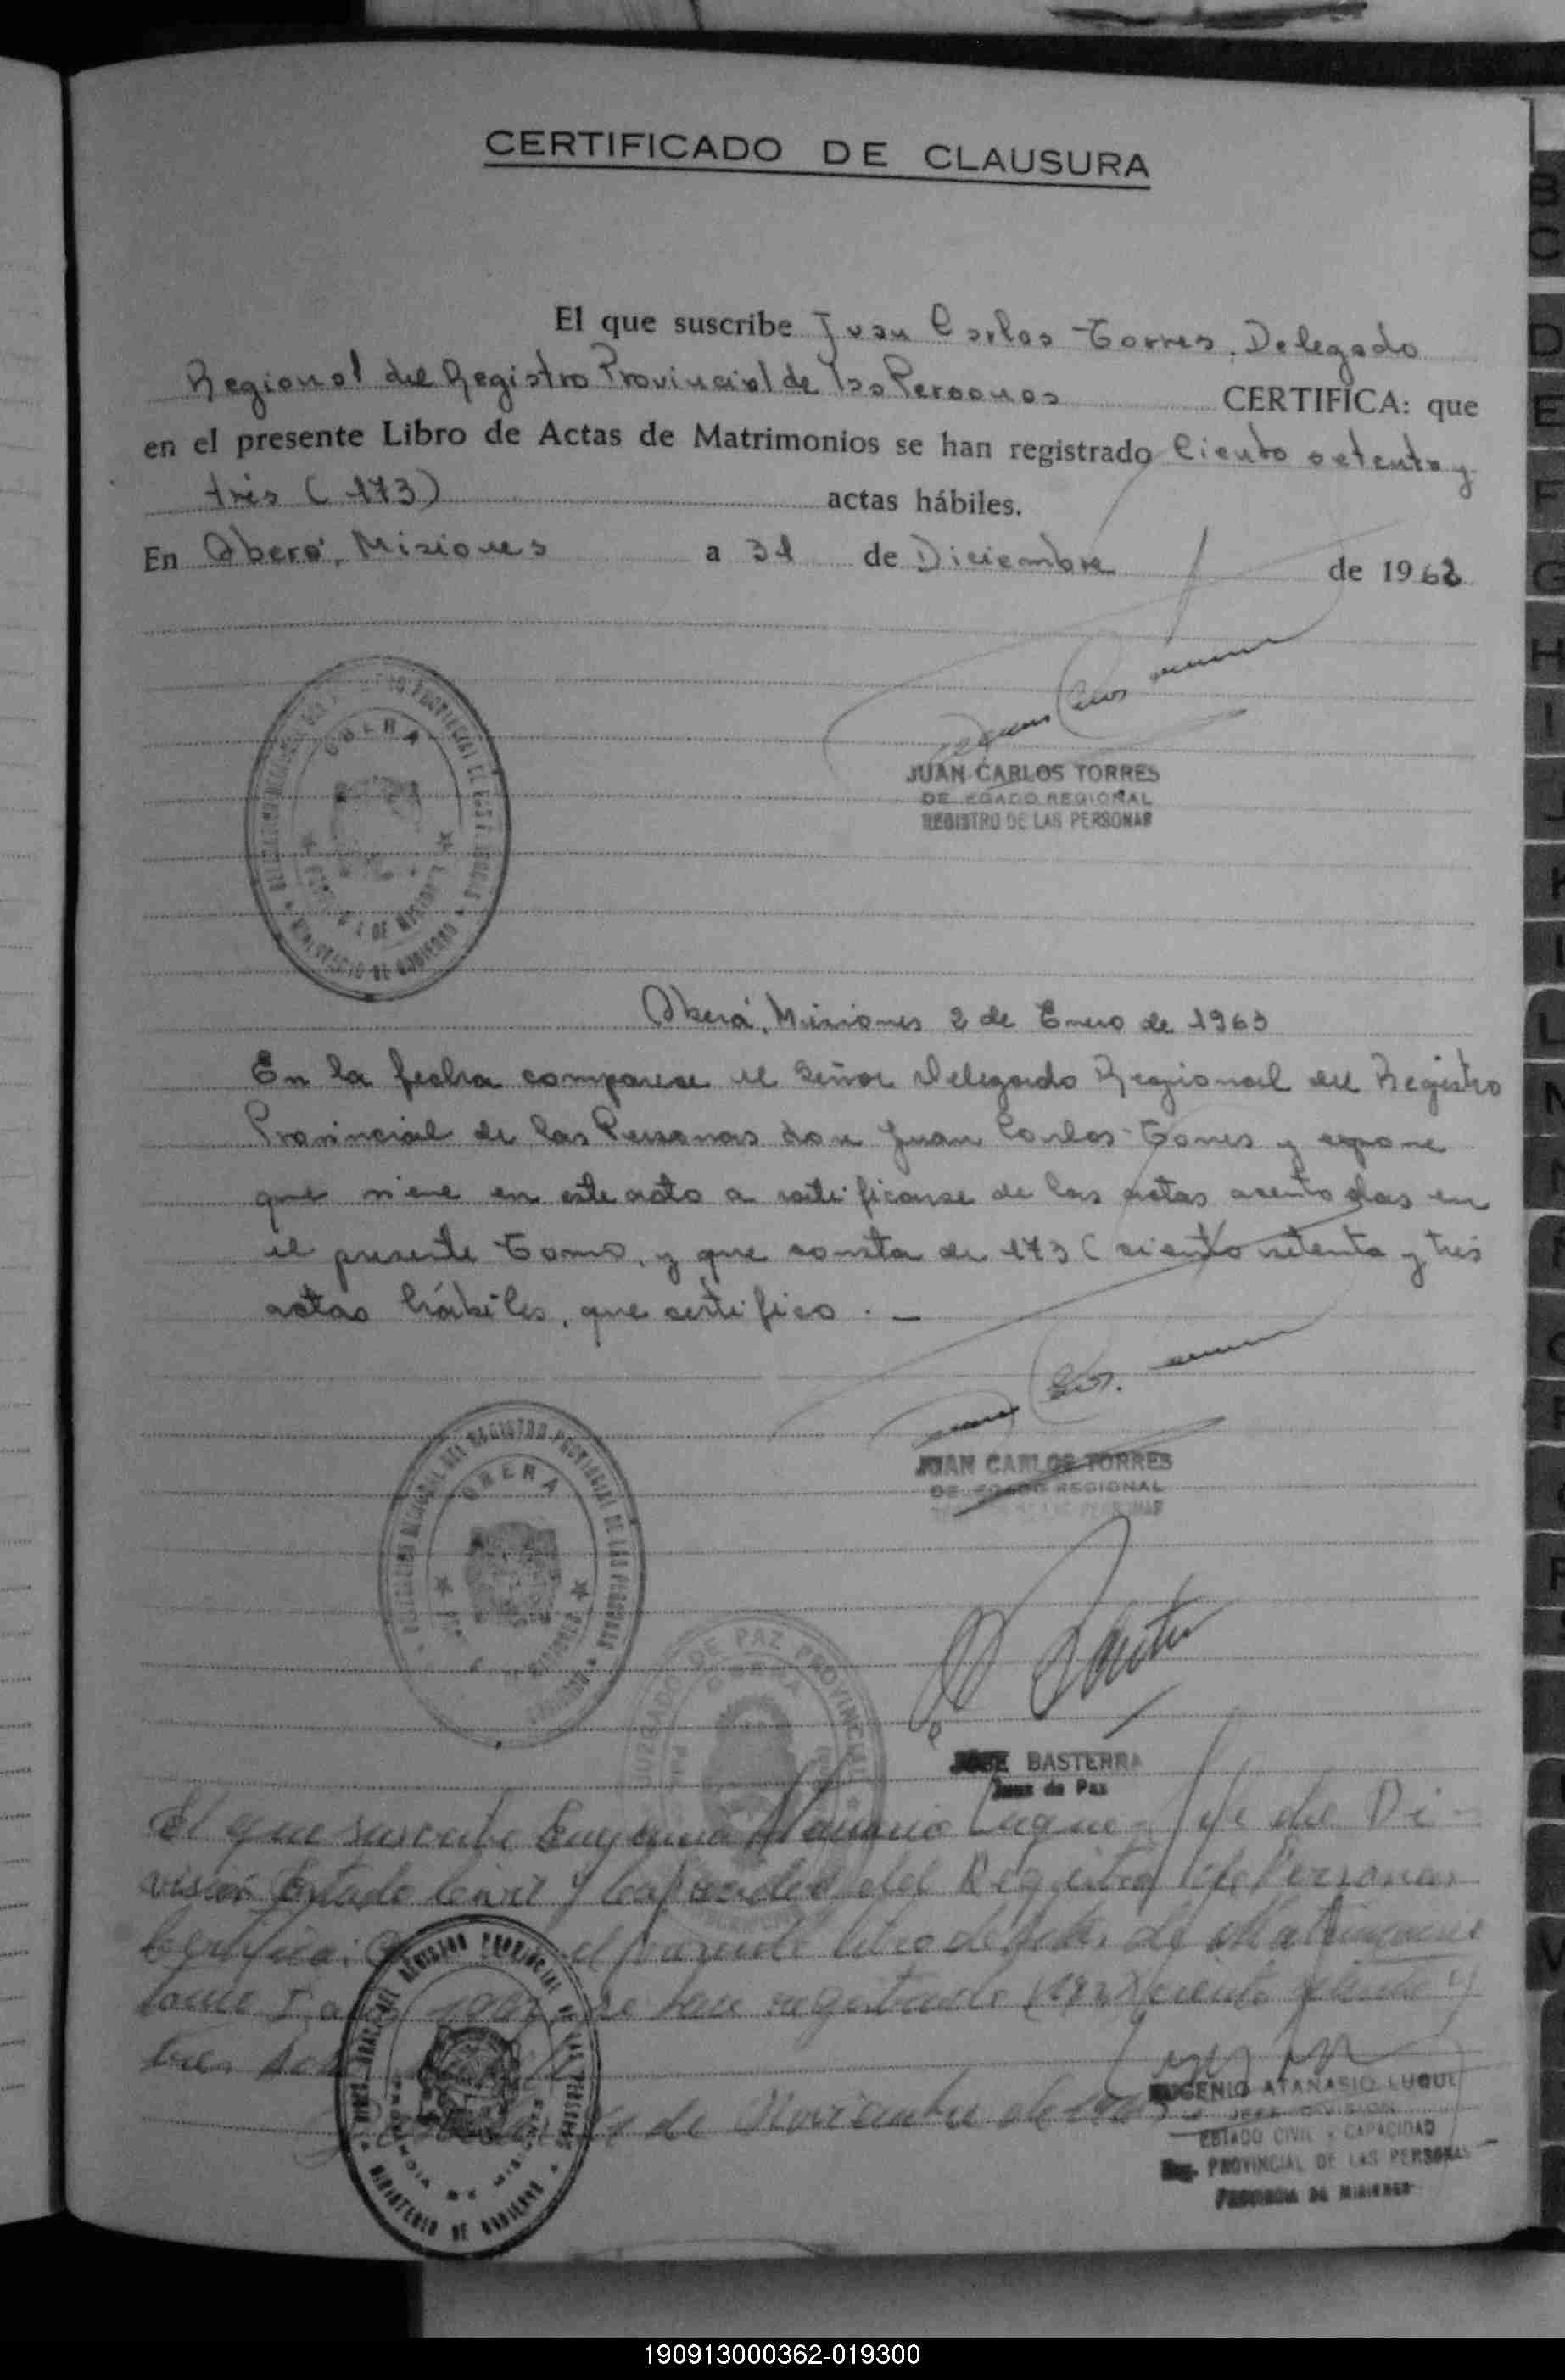 CERTIFICADO DE CLAUSURA
El que suscribe Juan Carlos Torres, Delegado
Regional del Registro Provincial de las Personas CERTIFICA: que
en el presente Libro de Actas de Matrimonios se han registrado Ciento setenta y
tres (173) actas hábiles.
En Oberá, Misiones a 31 de Diciembre de 1962
OBERA
MINISTERIO DE GOBIERNO
JUAN CARLOS TORRES
DELEGADO REGIONAL
REGISTRO DE LAS PERSONAS
Oberá, Misiones 2 de Enero de 1963
En la fecha comparese el Señor Delegado Regional del Registro
Provincial de las Personas don Juan Carlos Torres y expone
que viene en este acto a ratificarse de las actas asentadas en
el presente Tomo, y que consta de 173 (ciento setenta y tres
actas hábiles, que certifico. —
REGIONAL DEL REGISTRO PROVINCIAL DE LAS PERSONAS
OBERA
JUAN CARLOS TORRES
DELEGADO REGIONAL
JUZGADO DE PAZ PROVINCIAL
OBERA
JOSE BASTERRA
Juez de Paz
El que suscribe Eugenio Atanasio Luque Jefe de Di-
visión Estado Civil y Capacidad del Registro de Personas
Certifica: el presente libro de Actas de Matrimonio
tomo I se han registrado (173) ciento setenta y
tres
de Noviembre de
REGISTRO PROVINCIAL DE LAS PERSONAS
PROVINCIA DE MISIONES
MINISTERIO DE GOBIERNO
EUGENIO ATANASIO LUQUE
JEFE DIVISION
ESTADO CIVIL Y CAPACIDAD
Reg. PROVINCIAL DE LAS PERSONAS
PROVINCIA DE MISIONES
B
C
D
E
F
G
H
I
J
K
L
190913000362-019300